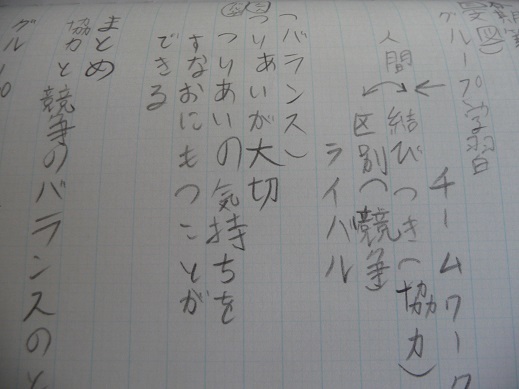 グループ学習
チームワーク
人間
結びつき(協力)
区別(競争)
ライバル
(バランス)
つりあいが大切
つりあいの気持ちを
すなおにもつことが
できる
まとめ
協力と競争のバランスのと
グループ